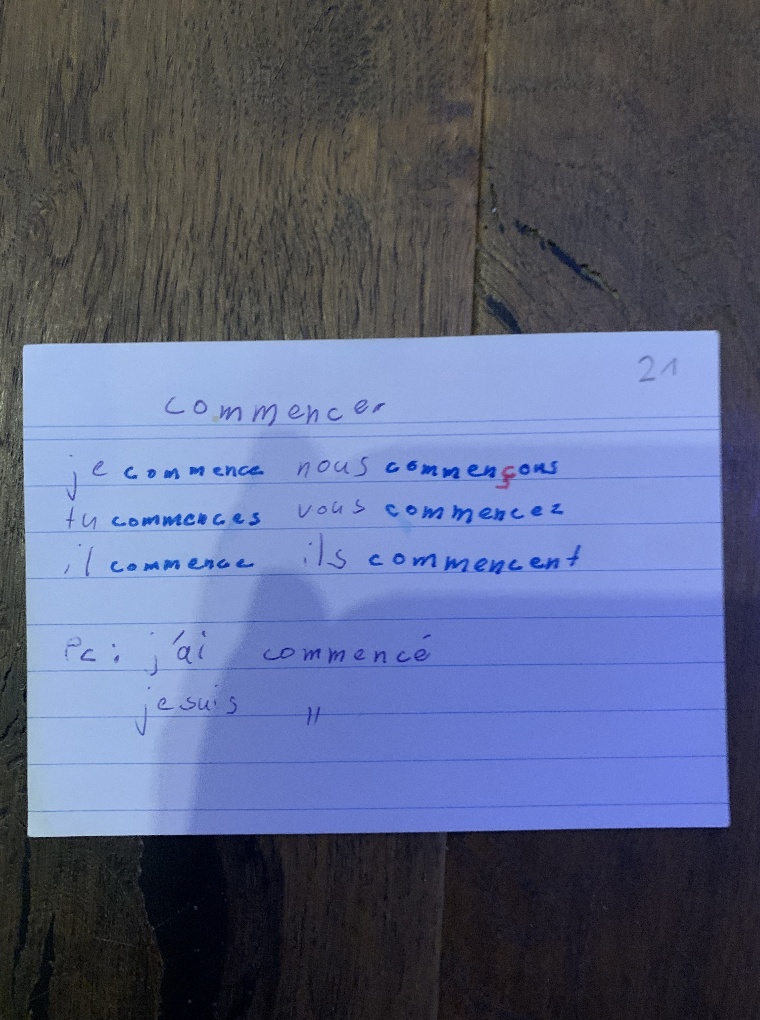 21
commencer
je commence nous commençons
tu commences vous commencez
il commence ils commencent
Pc: j'ai commencé
je suis "